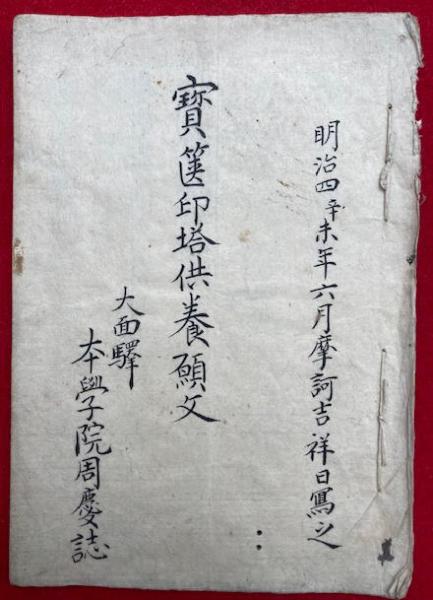 明治四辛未年六月摩訶吉祥日寫之
寳篋印塔供養願文
大面驛
本學院周慶誌